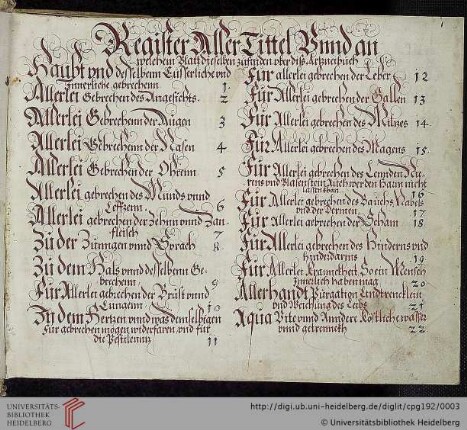 Register Aller Tittel Vnnd an
welchem Blatt dieselben zufinden vber diß Artzneibuch
Haubt vnd desselbenn Eusserliche vnd
Innerliche gebrechenn 1
Allerlei Gebrechen des Angesichts. 2
Allerlei Gebrechenn der Augen 3
Allerlei Gebrechenn der Nasen 4
Allerlei Gebrechen der Ohrenn 5
Allerlei gebrechen des Munds vnnd
Lefftzenn. 6
Allerlei gebrechen der Zehnn vnnd Zan-
fleisch 7
Zu der Zunngen vnnd Sprach 8
Zu dem Hals vnnd desselbenn Ge-
brechenn 9
Für Allerlei gebrechen der Brüst vnnd
Lunngenn 10
Zu dem Hertzen vnnd was demselbigen
für gebrechen mögen widerfaren vnd für
die Pestelenntz 11
Für allerlei gebrechen der Leber 12
Für Allerlei gebrechen der Gallen 13
Für Allerlei gebrechen des Miltzes 14
Für Allerlei gebrechen des Magens 15
Für Allerlei gebrechen der Lennden Nie-
renn vnd Blasenstein Auch wer den Harn nicht
16
Für Allerlei gebrechen des Bauchs Nabels
vnd der Dermen 17
Für Allerlei gebrechen der Scham 18
Für Allerlei gebrechen des Hinderns vnd
19
Für Allerlei Kranncktheit So ein Mensch
Innerlich haben mag 20
Allerhandt Purgation Lindtrencklein
vnd Weichung des Leibs 21
Aqua Vite vnnd Anndere Köstliche wasser
vnnd getrennckh 22
UNIVERSITÄTS-
BIBLIOTHEK
HEIDELBERG
http://digi.ub.uni-heidelberg.de/diglit/cpg192/0003
© Universitätsbibliothek Heidelberg